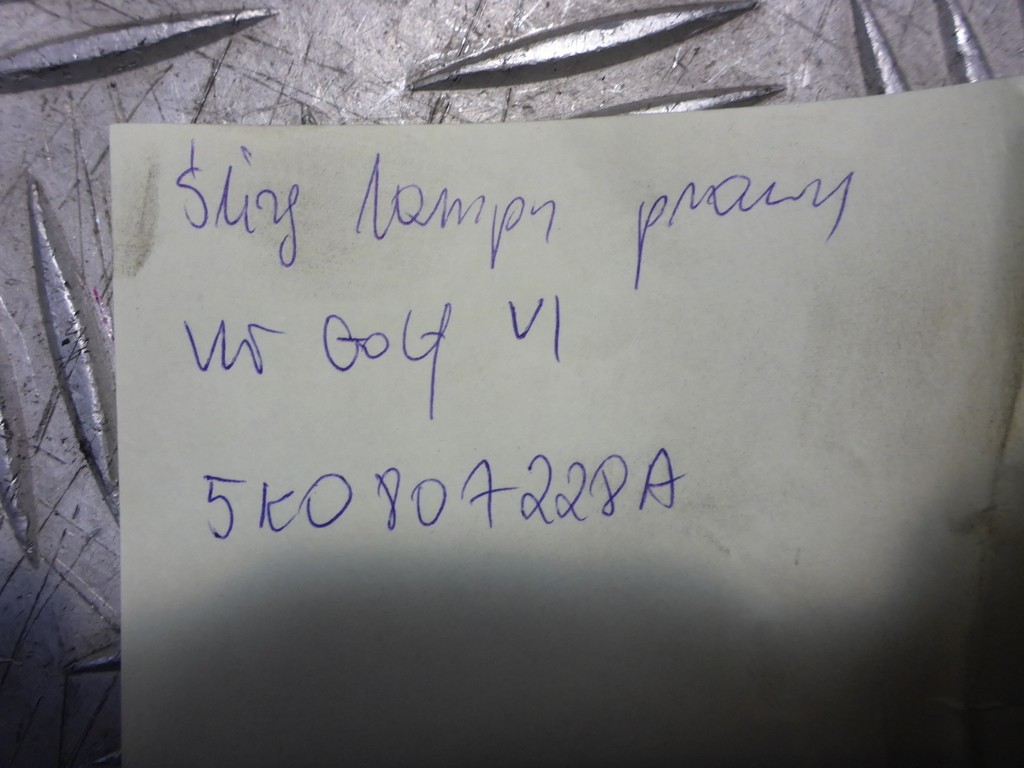 Ślizg lampy prawy
VW Golf VI
5K0807228A